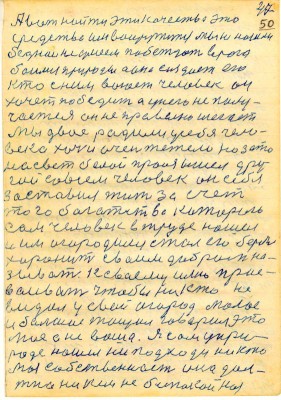 27.
50
А вот найти эти качества это
средства им воспитать мы на нашей
бедная не сумеем победить врага
боимся природы а она создает его
кто с ним воюет человек он
хочет победить а у него не полу-
чается он не правильно шагает
мы двое родили у себя чело-
века хочи очен тежело но зато
на свет белой произошел дру-
гой совсем человек он себя
заставил жит за счет
того богатства которое
сам человек в труде нашел
и им огородился стал его беря
хоронит своим добром на-
зыват. К своему имю присваиват чтобы никто не
видил у свой огород малое
и балшое тащил говорил это
мое а не ваша. Я сам у при-
роде нашел не подходи никто
моя собственност она дол-
жна ни кем не быт такой на